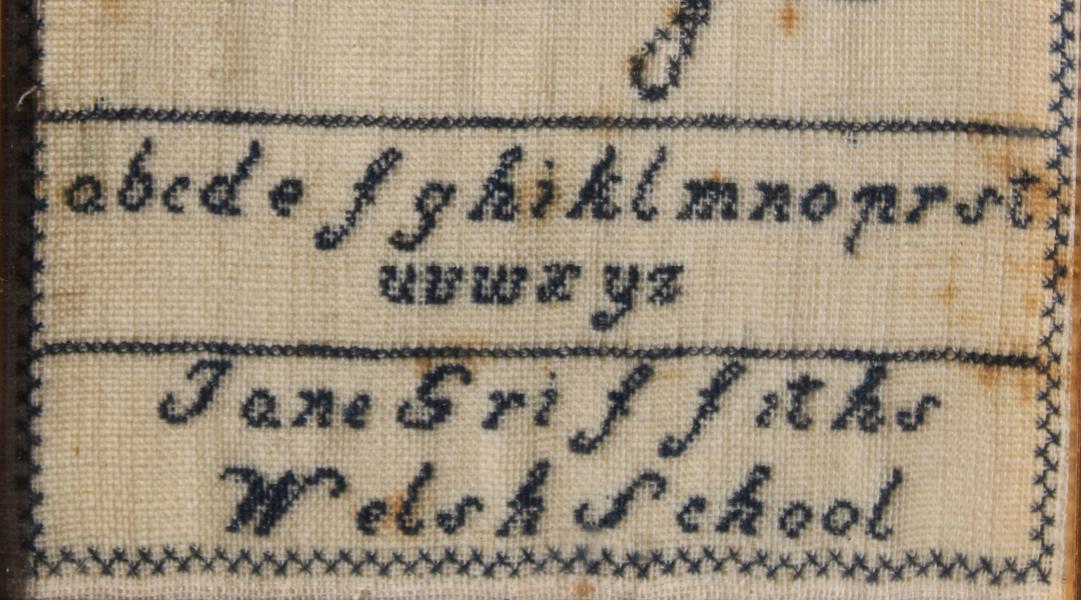 abcdefghiklmnoprst
uvwxyz
Jane Griffiths
Welsh School